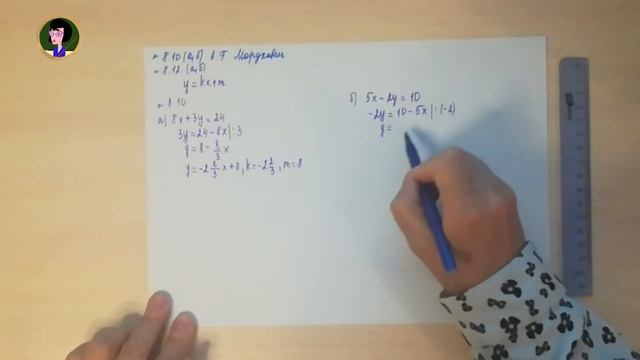 № 8.10 (а,б) А.Г. Мордкович
№ 8.12 (а,б)
y = kx+m
№ 8.10
а) 8x+3y=24
3y=24-8x|:3
y=8-8/3x
y=-2 2/3 x+8, k=-2 2/3, m=8
б) 5x-2y=10
-2y=10-5x|:(-2)
y=